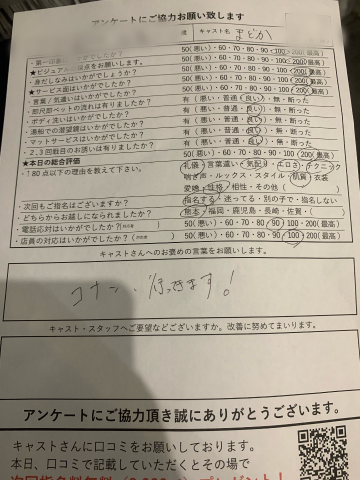 アンケートにご協力お願い致します
キャスト名 まどか
・第一印象はいかがでしたか？ 50(悪い)・60・70・80・90・100・200(最高)
★ビジュアル採点をお願いします。 50(悪い)・60・70・80・90・100・200(最高)
・身だしなみはいかがでしょうか？ 50(悪い)・60・70・80・90・100・200(最高)
★サービス面はいかがでしたか？ 50(悪い)・60・70・80・90・100・200(最高)
・言葉／気遣いはいかがでしたか？ 有(悪い・普通・良い)・無・断った
・即尺即ベットの流れは有りましたか？ 有(悪い・普通・良い)・無・断った
・ボディ洗いはいかがでしたか？ 有(悪い・普通・良い)・無・断った
・湯船での潜望鏡はいかがでしたか？ 有(悪い・普通・良い)・無・断った
・マットサービスはいかがでしたか？ 有(悪い・普通・良い)・無・断った
・2、3回戦目のお誘いは有りましたか？
★本日の総合評価 50(悪い)・60・70・80・90・100・200(最高)
・180点以下の理由を教えて下さい。 礼儀・言葉遣い・気配り・エロさ・テクニック
喘ぎ声・ルックス・スタイル・肌質・衣装
愛嬌・性格・相性・その他(　　)
・次回もご指名はございますか？ 指名する・迷ってる・別の子で・指名しない
・どちらからお越しになられましたか？ 熊本・福岡・鹿児島・長崎・佐賀・(　　)
・電話応対はいかがでしたか？ 50(悪い)・60・70・80・90・100・200(最高)
・店員の対応はいかがでしたか？ 50(悪い)・60・70・80・90・100・200(最高)
キャストさんへのお褒めの言葉をお願いします。
キャスト・スタッフへご要望などございますか。改善に努めてまいります。
アンケートにご協力頂き誠にありがとうございます。
キャストさんに口コミをお願いしております。
本日、口コミで記載していただくとその場で